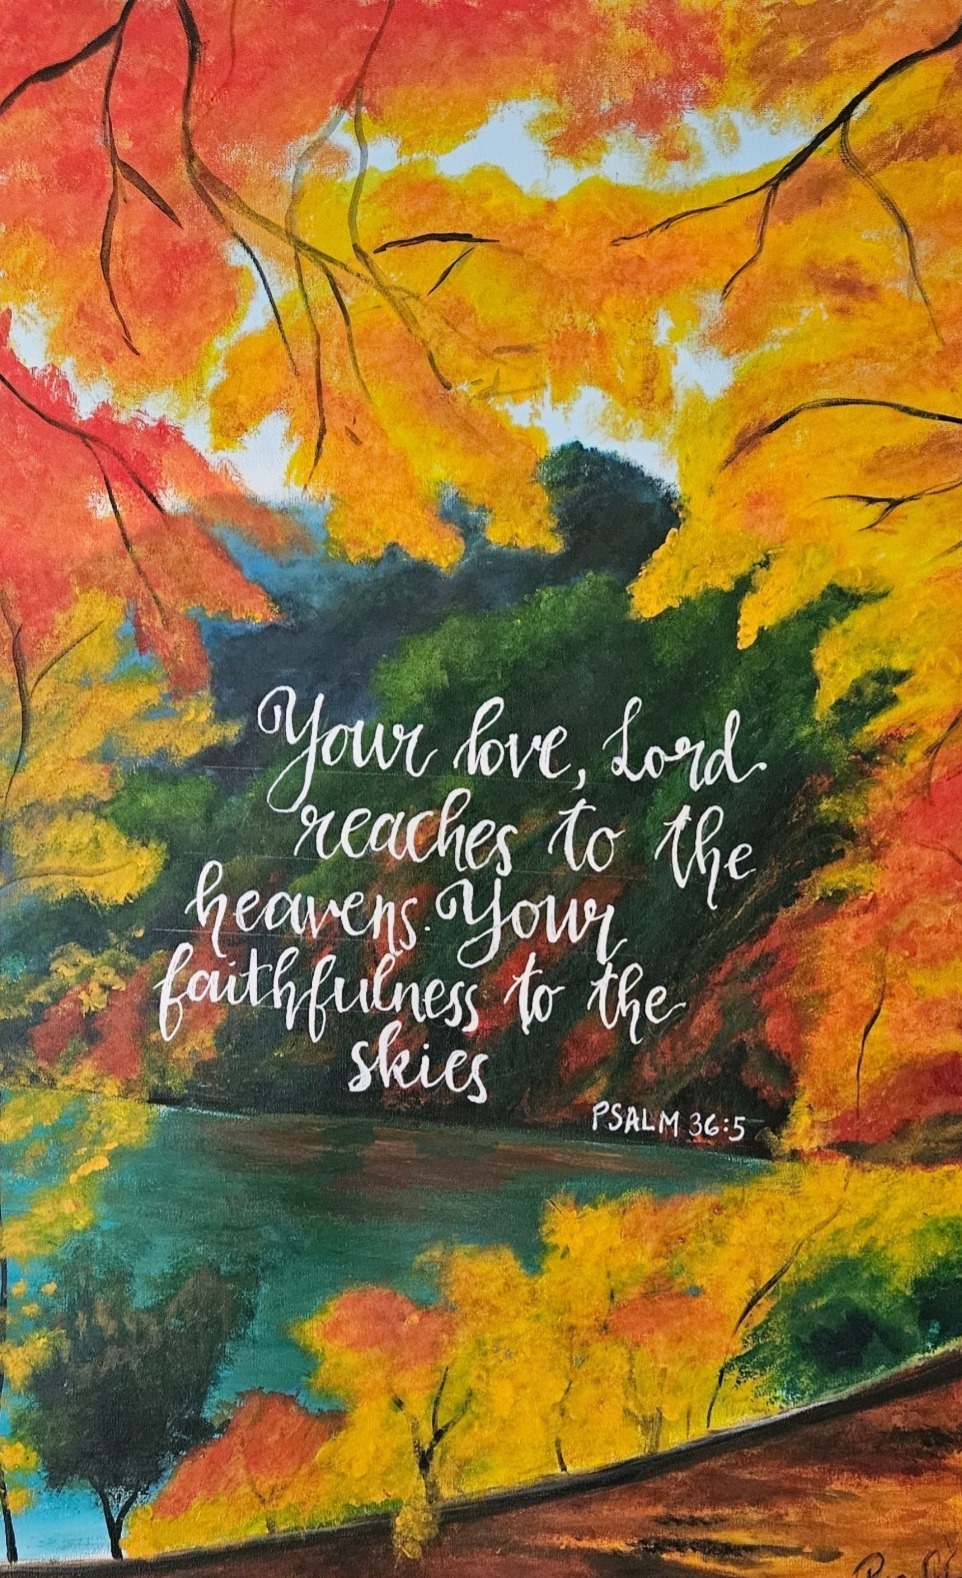 Your love, Lord
reaches to the
heavens. Your
faithfulness to the
skies
PSALM 36:5